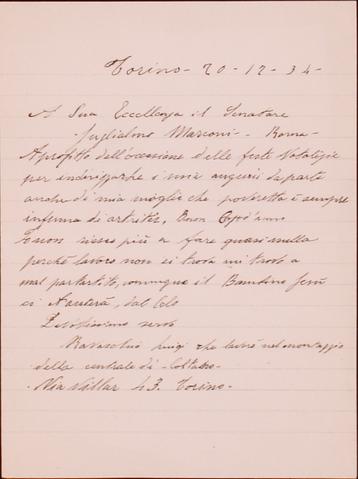 Torino - 20 - 12 - 34 -
A Sua Eccellenza il Senatore
Guglielmo Marconi - Roma -
Aprofitto dell'occasione delle feste Natalizie
per indirizzarghe i miei auguri da parte
anche di mia moglie che poveretta è sempre
inferma di artrite, Buon Capo d'anno
E non riesco più a fare quasi nulla
perchè lavoro non si trova mi trovo a
mal partito, comunque il Bambino Gesù
ci aiuterà, dal Cielo
servo
Luigi che lavrò nel montaggio
della centrale di Coltano -
Via Villar 43. Torino -